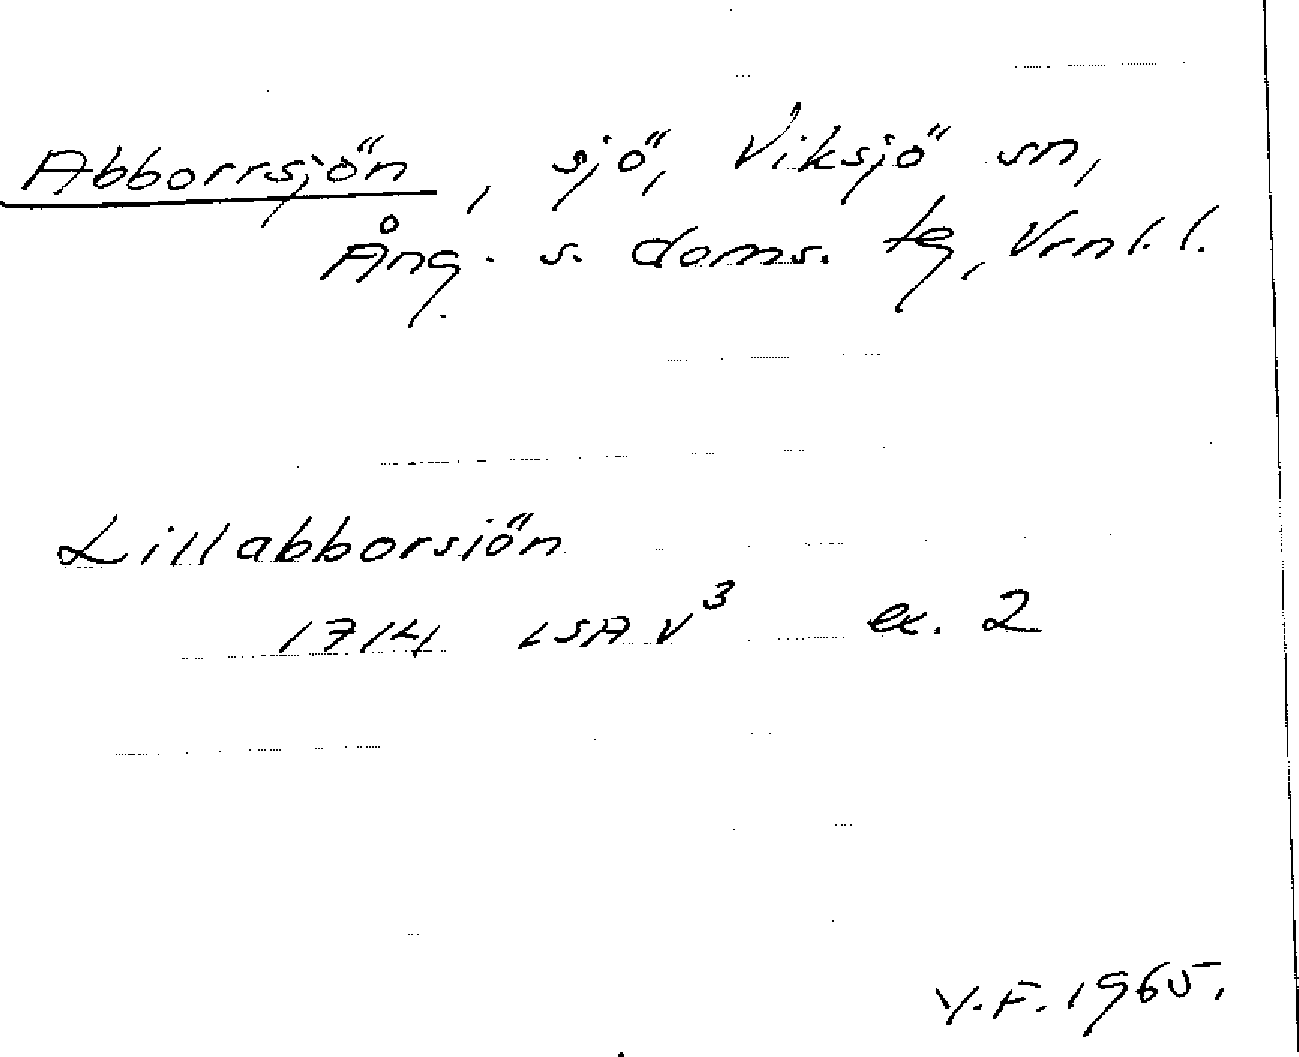 Abborrsjön, sjö, Viksjö sn,
Ång. s. doms. tg, Vrnl. l.
Lillabborsiön
1714 LSA V³ ex. 2
Y.F. 1965.